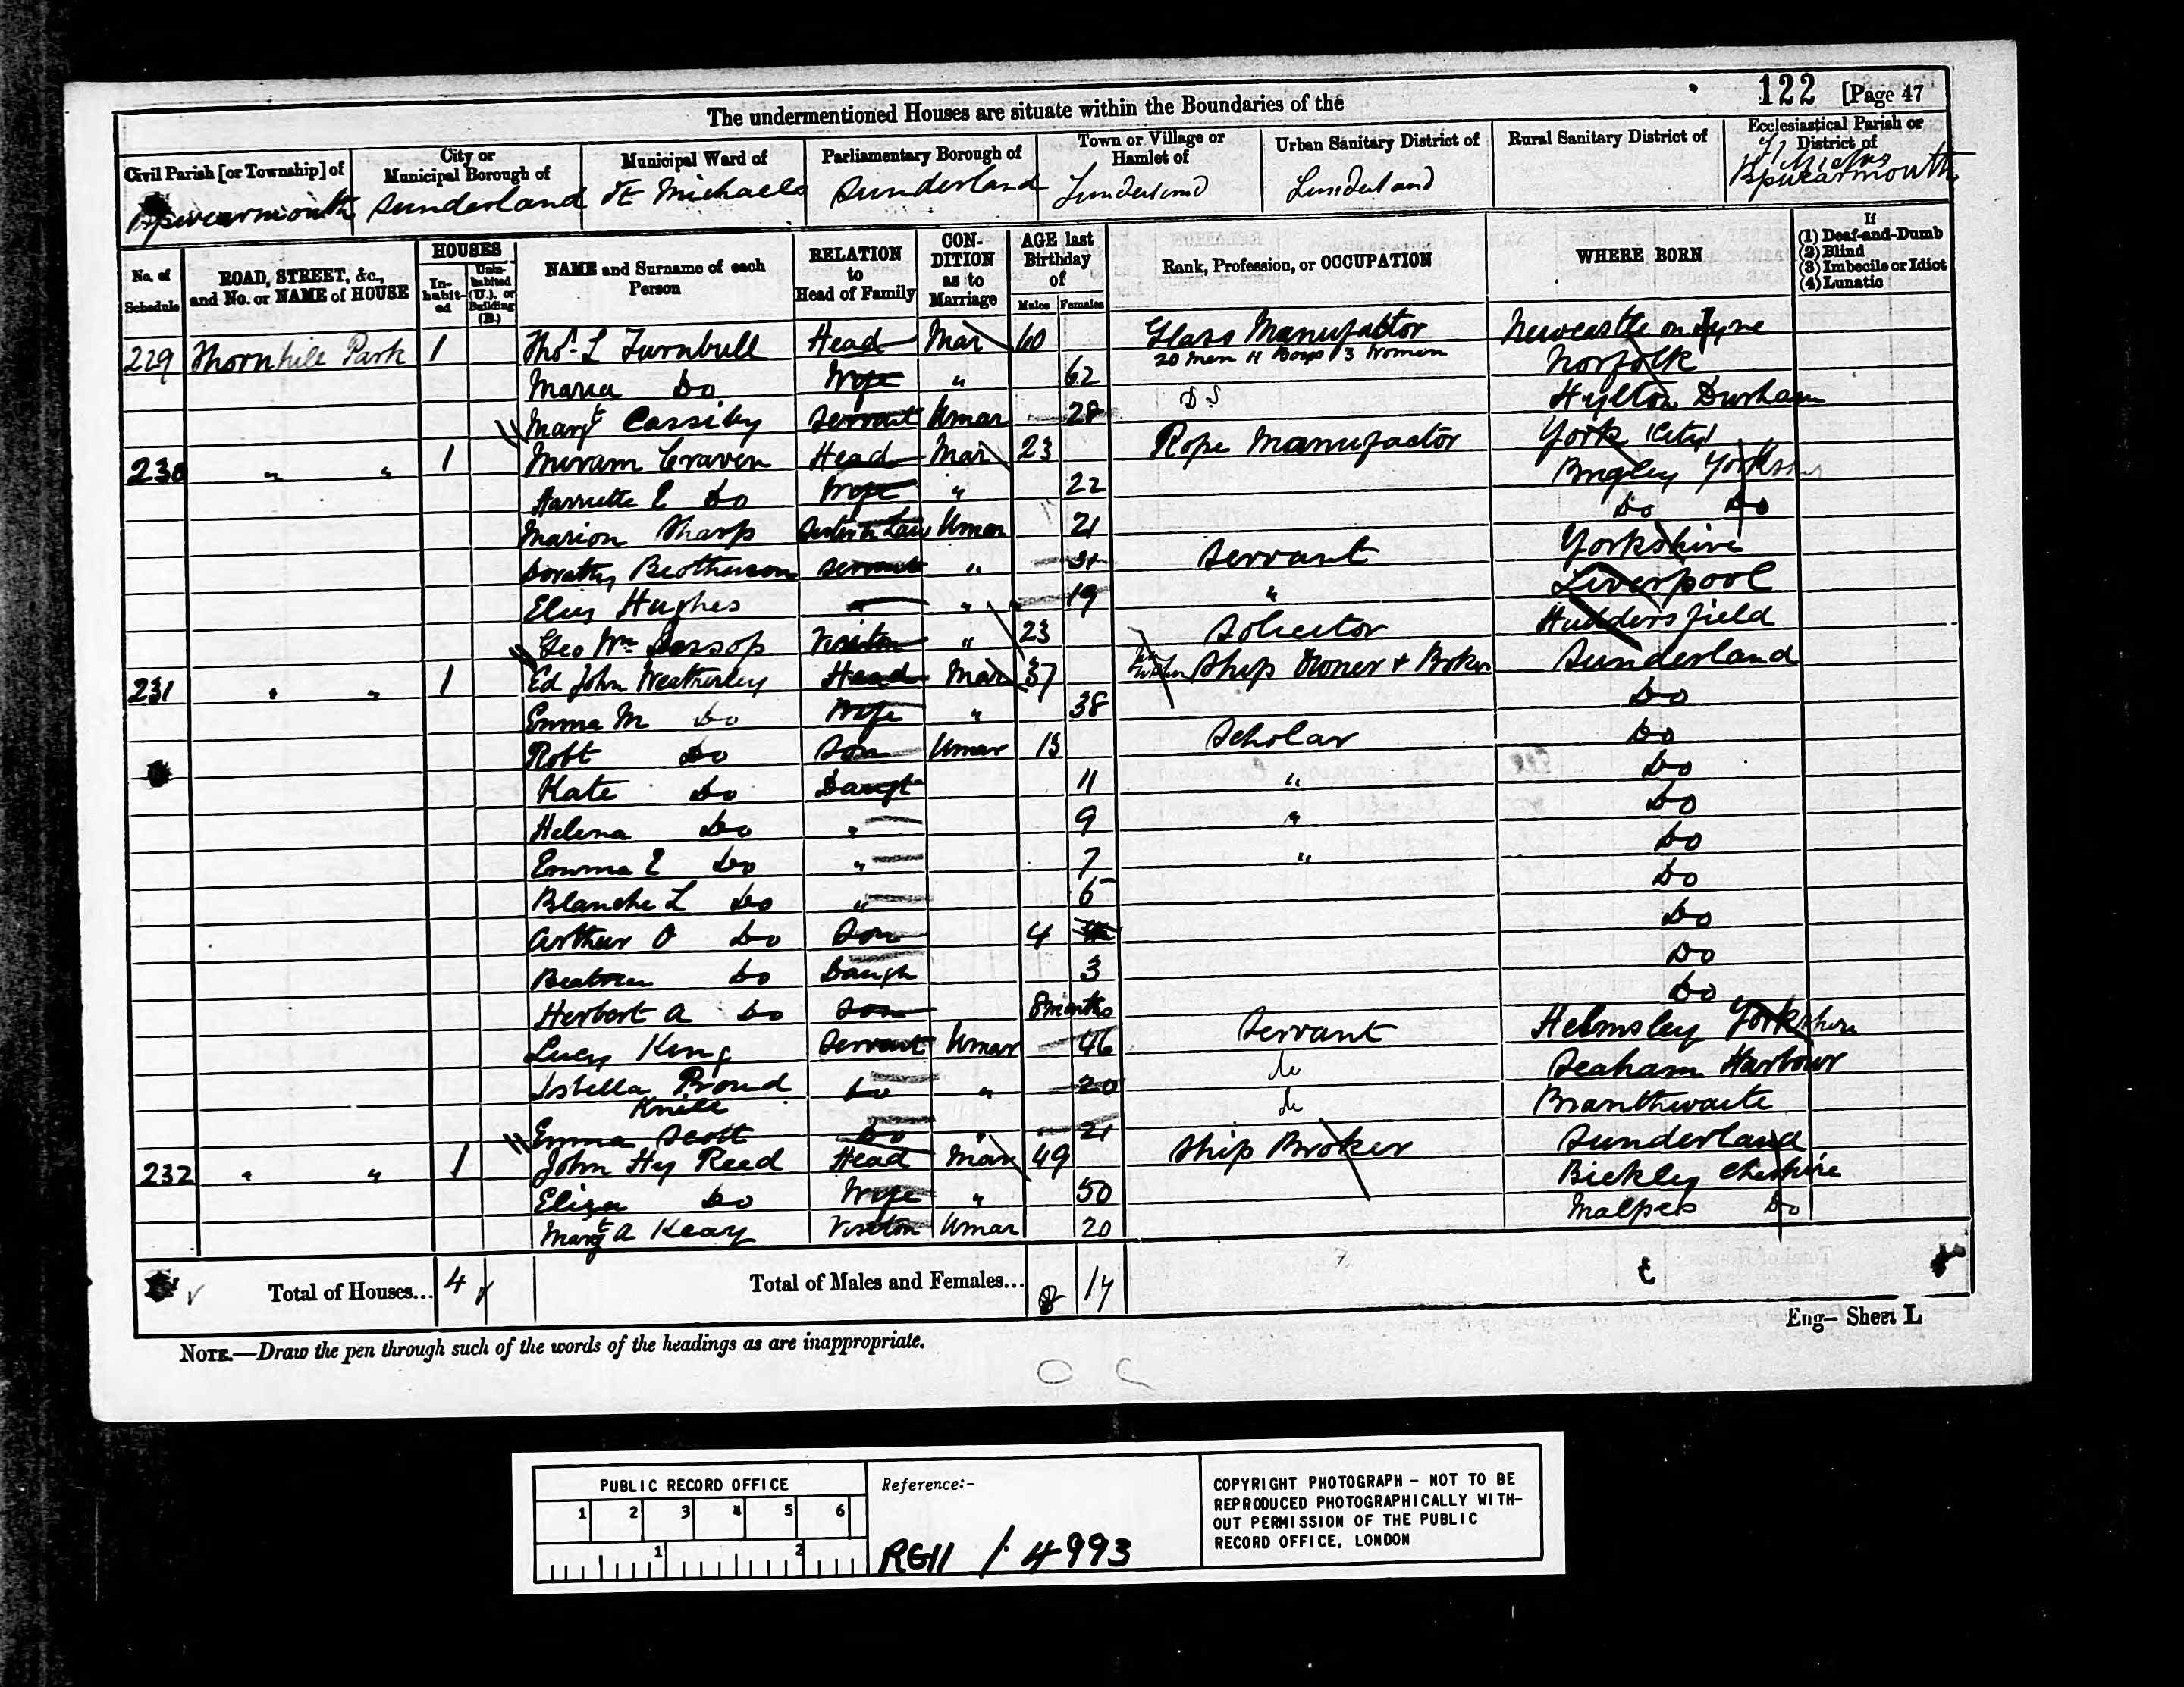 122 [Page 47
The undermentioned Houses are situate within the Boundaries of the
Civil Parish [or Township] of
Bpwearmouth
City or Municipal Borough of
Sunderland
Municipal Ward of
St Michaels
Parliamentary Borough of
Sunderland
Town or Village or Hamlet of
Sunderland
Urban Sanitary District of
Sunderland
Rural Sanitary District of
Ecclesiastical Parish or District of
Bpwearmouth
No. of Schedule
ROAD, STREET, &c., and No. or NAME of HOUSE
HOUSES
Inhabited
Uninhabited (U.), or Building (B.)
NAME and Surname of each Person
RELATION to Head of Family
CONDITION as to Marriage
AGE last Birthday of
Males Females
Rank, Profession, or OCCUPATION
WHERE BORN
If
(1) Deaf-and-Dumb
(2) Blind
(3) Imbecile or Idiot
(4) Lunatic
229 Thornhill Park 1 Thos. L Turnbull Head Mar 60 Glass Manufactor Newcastle on Tyne
20 Men 11 Boys 13 Women
Maria Do Wife " 62 Norfolk
Margt Cassiby Servant Unmar 28 D S Hylton Durham
230 " " 1 Head Mar 23 Rope Manufactor York City
Craven
Harriette E Do Wife " 22 Bingley Yorkshire
Marion Sharp Sister in Law Unmar 21 Do Do
Dorathy Servant " 31 Servant Yorkshire
Eliz Hughes " " 19 " Liverpool
Geo Wm Jessop Visitor " 23 Solicitor Huddersfield
231 " " 1 Ed John Weatherley Head Mar 37 Ship Owner & Broker Sunderland
Emma M Do Wife " 38 Do
Robt Do Son Unmar 13 Scholar Do
Kate Do Daugt 11 " Do
Helena Do " 9 " Do
Emma E Do " 7 " Do
Blanche L Do " 6 Do
Arthur O Do Son 4 Do
Beatrice Do Daugh 3 Do
Herbert A Do Son 8 months Do
Lucy King Servant Unmar 46 Servant Helmsley Yorkshire
Isbella Proud Do " 20 do Seaham Harbour
Knill
Emma Scott Do " 21 do Branthwaite
232 " " 1 John Hy Reed Head Mar 49 Ship Broker Sunderland
Eliza Do Wife " 50 Bickley Cheshire
Margt A Keay Visitor Unmar 20 Malpes Do
Total of Houses... 4
Total of Males and Females... 8 17
Eng- Sheet L
NOTE.—Draw the pen through such of the words of the headings as are inappropriate.
PUBLIC RECORD OFFICE
1 2 3 4 5 6
1 2
Reference:-
RG11 / 4993
COPYRIGHT PHOTOGRAPH - NOT TO BE
REPRODUCED PHOTOGRAPHICALLY WITH-
OUT PERMISSION OF THE PUBLIC
RECORD OFFICE, LONDON